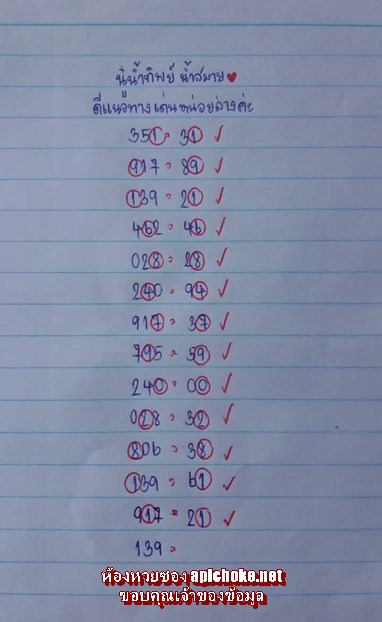 นี่น้ำทิพย์ น้ำสบาย
ดูแนวทางเด่นหน่อยล่างค่ะ
351 = 31 ✓
917 = 89 ✓
139 = 21 ✓
462 = 46 ✓
028 = 28 ✓
240 = 94 ✓
917 = 37 ✓
795 = 59 ✓
240 = 00 ✓
028 = 32 ✓
806 = 38 ✓
139 = 61 ✓
917 = 21 ✓
139 =
ห้องหวยซอง aplchoke.net
ขอบคุณเจ้าของข้อมูล